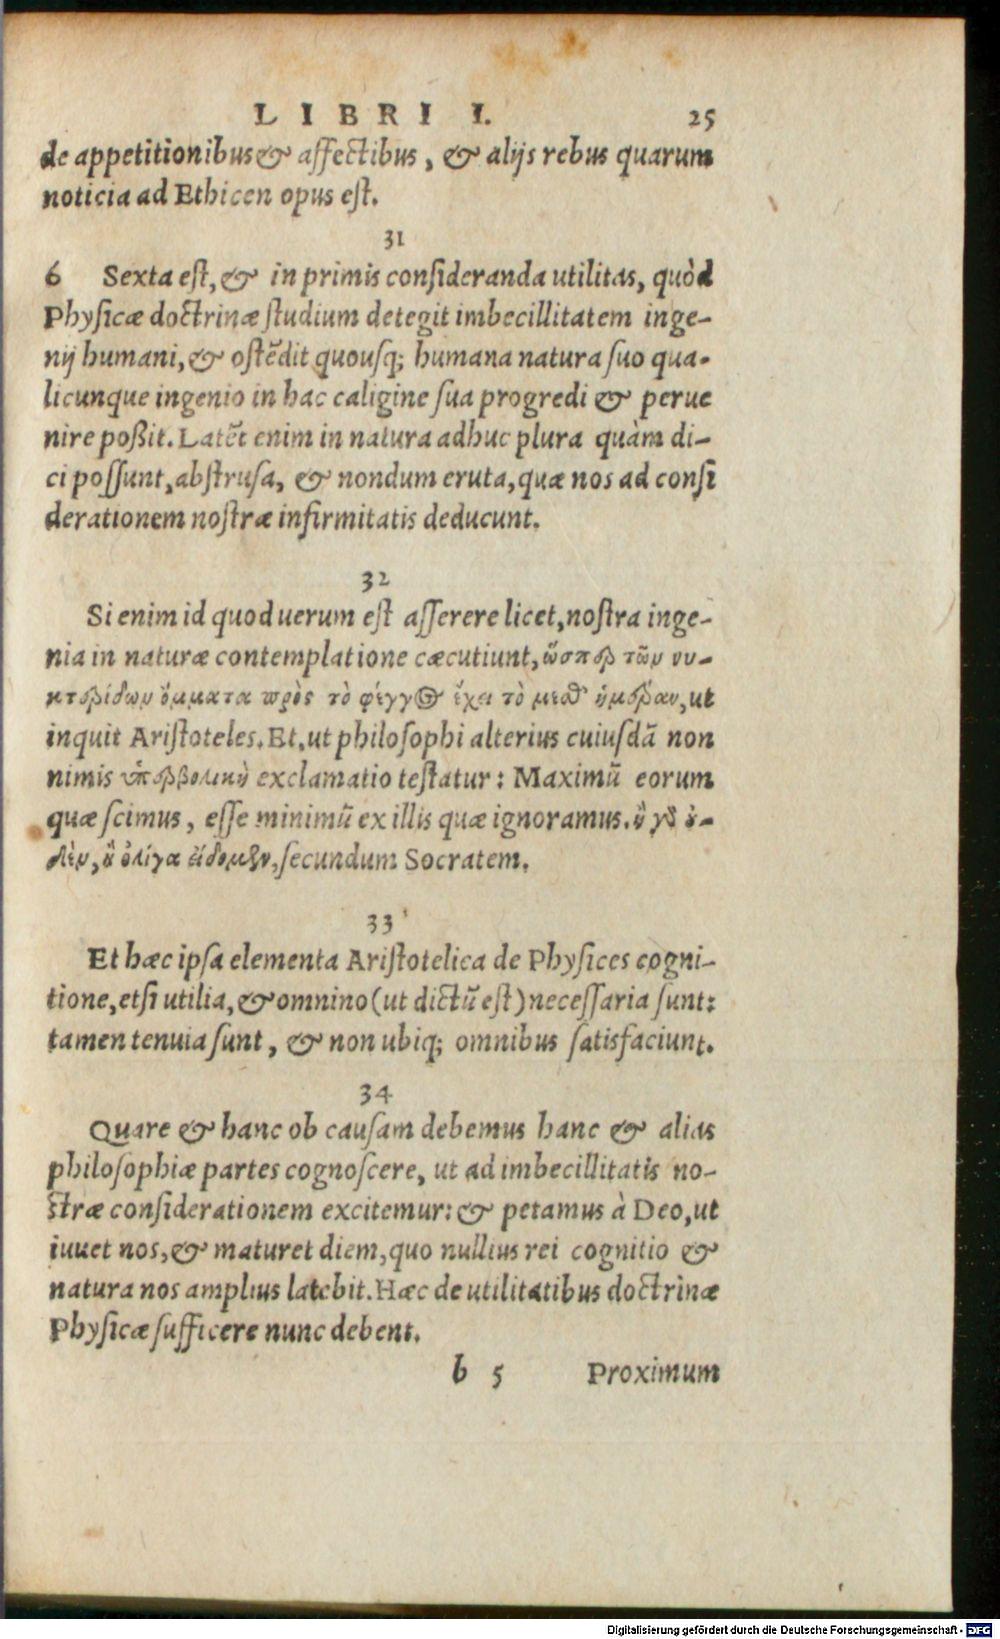 LIBRI I. 25
de appetitionibus & affectibus, & alijs rebus quarum
noticia ad Ethicen opus est.
31
6 Sexta est, & in primis consideranda utilitas, quòd
Physicæ doctrinæ studium detegit imbecillitatem inge-
nij humani, & ostẽdit quousq; humana natura suo qua-
licunque ingenio in hac caligine sua progredi & perue
nire poßit. Latẽt enim in natura adhuc plura quàm di-
ci possunt, abstrusa, & nondum eruta, quæ nos ad consi
derationem nostræ infirmitatis deducunt.
32
Si enim id quod uerum est asserere licet, nostra inge-
nia in naturæ contemplatione cæcutiunt, ὥσπερ τῶν νυ-
κτερίδων ὄμματα πρὸς τὸ φέγγος ἔχει τὸ μεθ’ ἡμέραν, ut
inquit Aristoteles. Et, ut philosophi alterius cuiusdã non
nimis ὑπερβολικὴ exclamatio testatur: Maximũ eorum
quæ scimus, esse minimũ ex illis quæ ignoramus. ἢ γὰρ ὀ-
δὲν, ἢ ὀλίγα εἴδομεν, secundum Socratem.
33
Et hæc ipsa elementa Aristotelica de Physices cogni-
tione, etsi utilia, & omnino (ut dictũ est) necessaria sunt:
tamen tenuia sunt, & non ubiq; omnibus satisfaciunt.
34
Quare & hanc ob causam debemus hanc & alias
philosophiæ partes cognoscere, ut ad imbecillitatis no-
stræ considerationem excitemur: & petamus à Deo, ut
iuuet nos, & maturet diem, quo nullius rei cognitio &
natura nos amplius latebit. Hæc de utilitatibus doctrinæ
Physicæ sufficere nunc debent.
b 5 Proximum
Digitalisierung gefördert durch die Deutsche Forschungsgemeinschaft - DFG